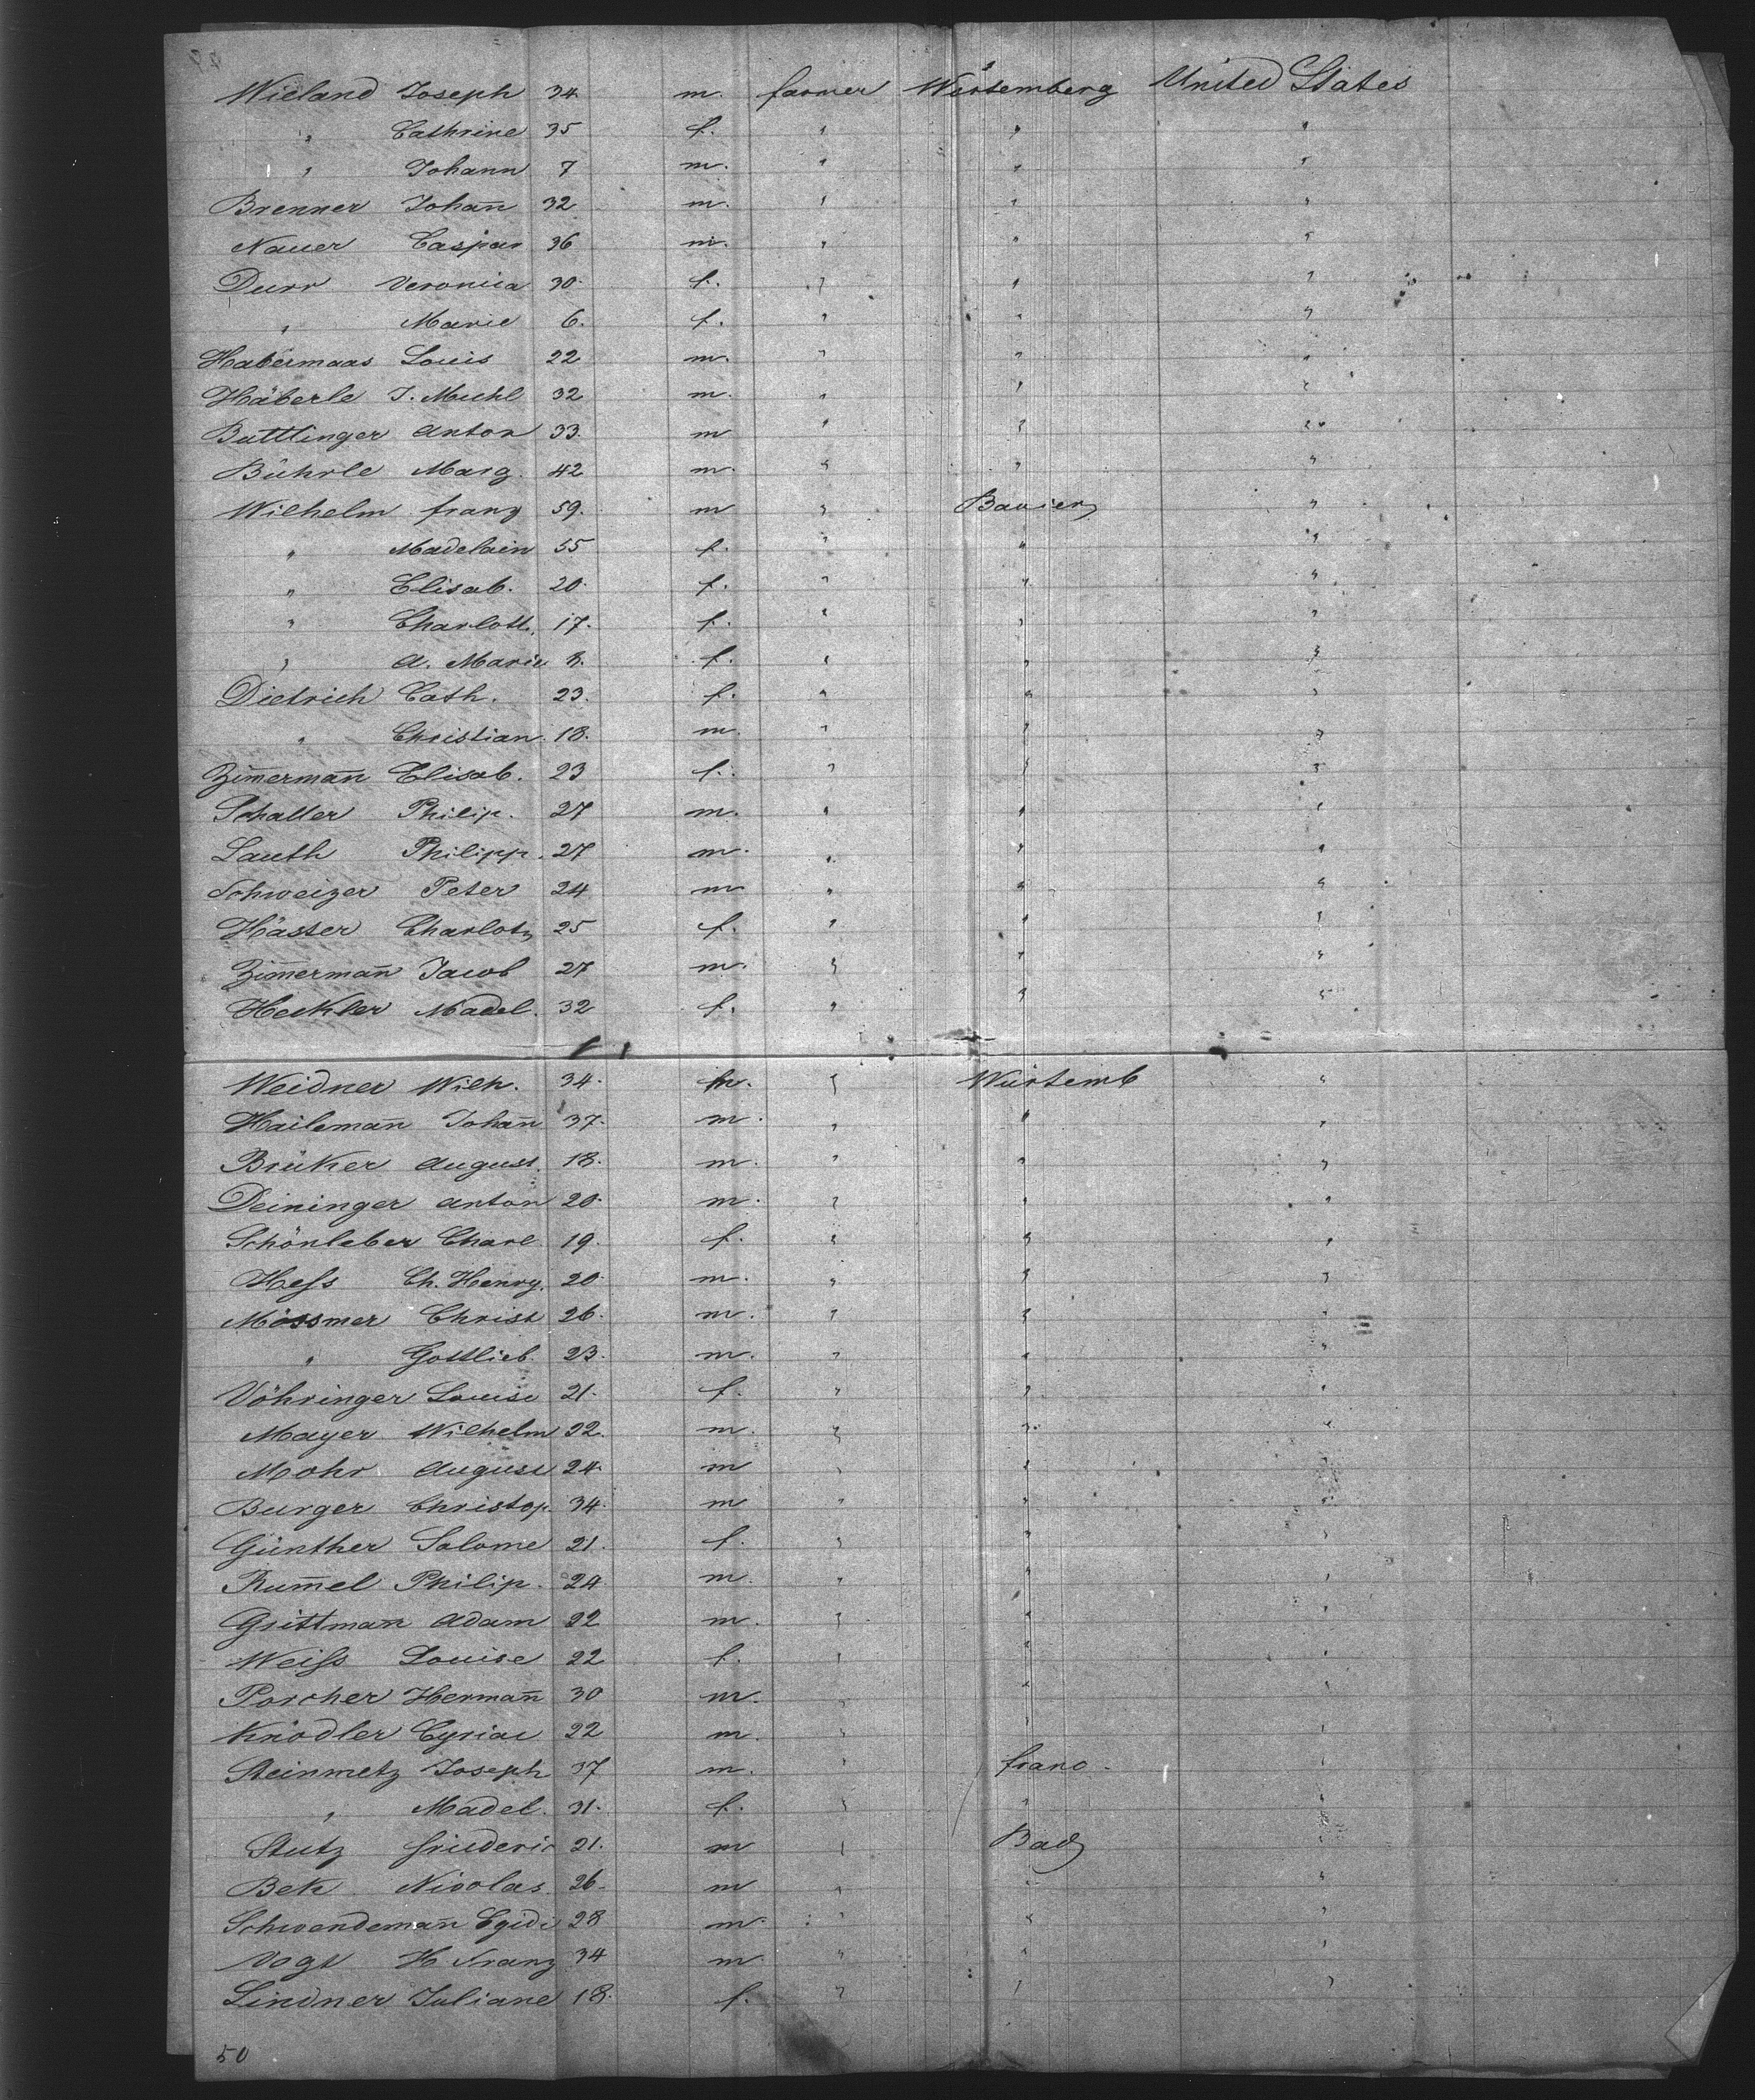 Wieland Joseph 34 m. farmer Würtemberg United States
" Cathrine 35 f. " " "
" Johann 7 m. " " "
Brenner Johan̄ 32 m. " " "
Nauer Caspar 36 m. " " "
Durr Veronica 30. f. " " "
" Marie 6. f. " " "
Habermaas Louis 22 m. " " "
Häberle J. Michl 32 m. " " "
Buttlinger Anton 33. m " " "
Bührle Marg. 42 m. " " "
Wilhelm franz 59. m " Bavier "
" Madelain 55 f. " " "
" Elisab. 20. f. " " "
" Charlott. 17. f. " " "
" A. Marie 8. f. " " "
Dietrich Cath. 23. f. " " "
" Christian. 18. m. " " "
Zim̄erman̄ Elisab. 23 f. " " "
Schaller Philip. 27 m. " " "
Lauth Philipp. 27 m. " " "
Schweizer Peter 24 m " " "
Hässer Charlot 25 f. " " "
Zim̄erman̄ Jacob 27 m. " " "
Heckler Madel. 32 f. " " "
Weidner Wilh. 34. m. " Würtemb "
Haileman̄ Johan̄ 37. m. " " "
Brüker August. 18. m. " " "
Deininger Anton 20. m. " " "
Schönleber Charl 19. f. " " "
Heſs Ch. Henry. 20 m. " " "
Mössmer Christ 26. m. " " "
" Gottlieb. 23. m. " " "
Vöhringer Louise 21. f. " " "
Mayer Wilhelm 22. m. " " "
Mohr August 24. m " " "
Burger Christop. 34. m " " "
Günther Salome 21. f. " " "
Rum̄el Philip. 24. m. " " "
Grittman̄ Adam 22 m. " " "
Weiſs Louise 22 f. " " "
Porcher Herman̄ 30 m. " " "
Knödler Cyriac 22 m. " " "
Steinmetz Joseph 37 m. " franc. "
" Madel. 31. f. " " "
Stutz friederic 21. m " Bad "
Bek Nicolas. 26. m " " "
Schwendeman̄ Egidi 28 m. " " "
Vogt H Franz 34 m. " " "
Lindner Juliane 18. f. " " "
50